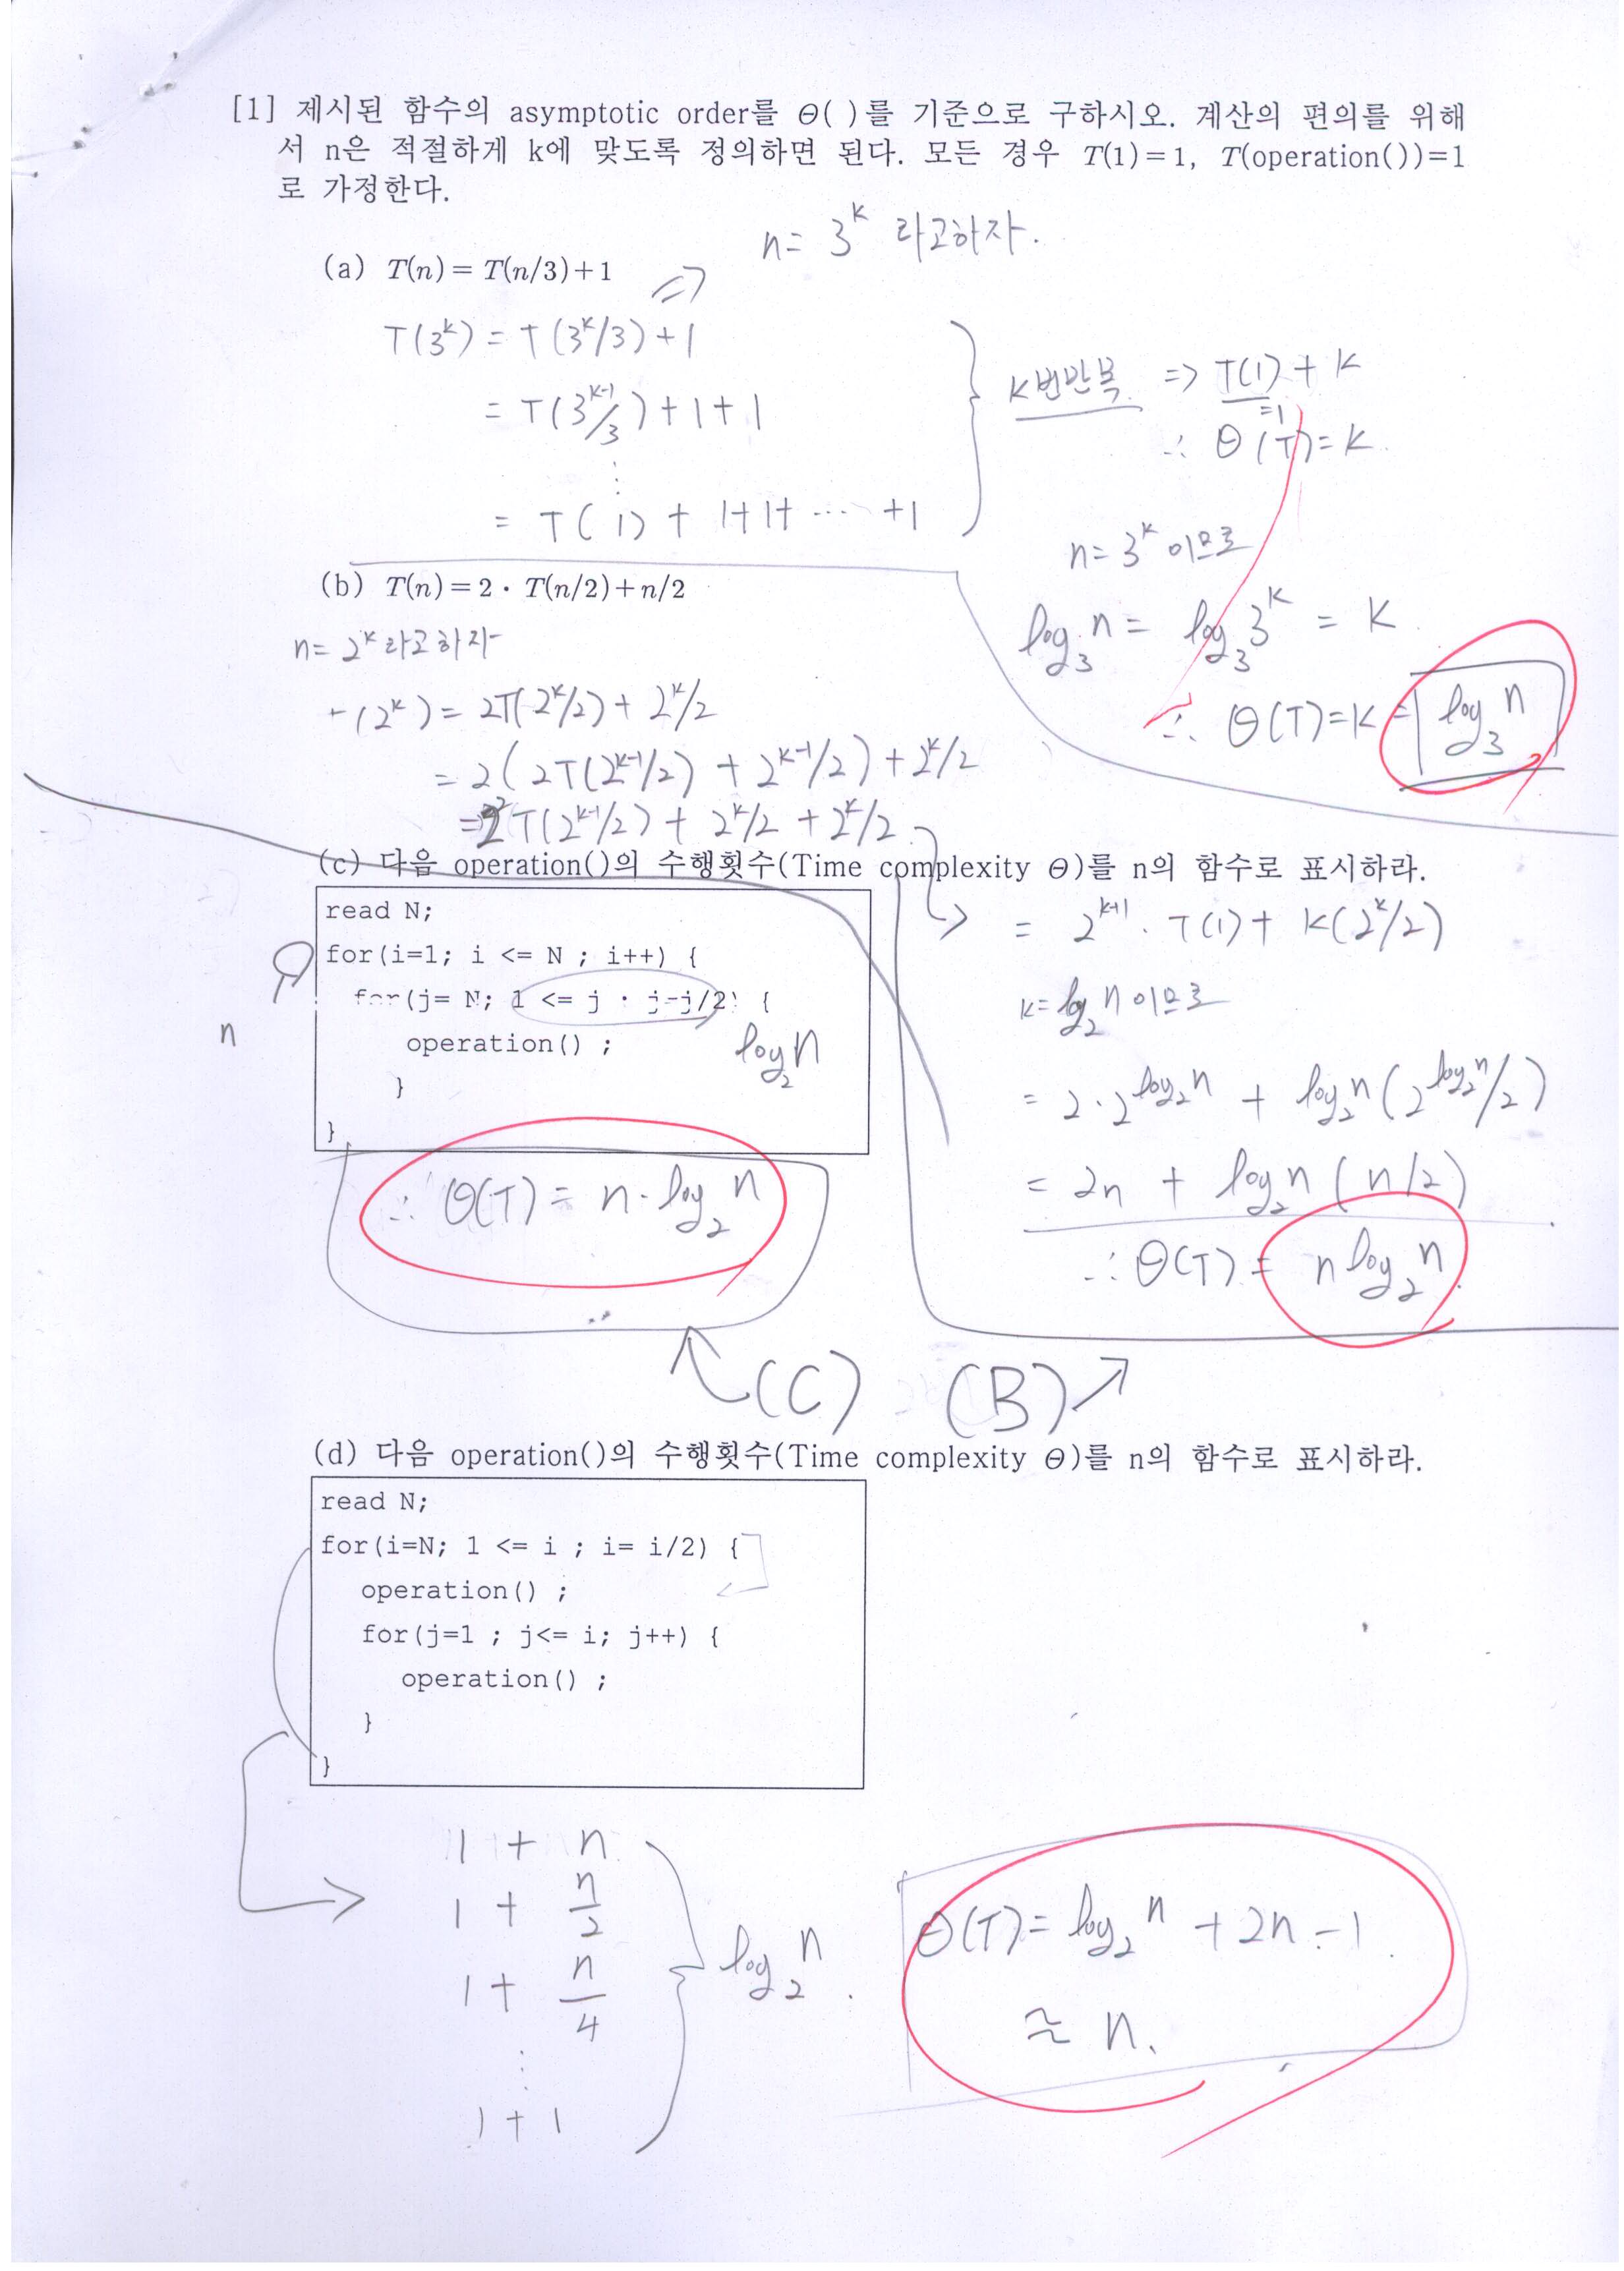 [1] 제시된 함수의 asymptotic order를 Θ( )를 기준으로 구하시오. 계산의 편의를 위해
서 n은 적절하게 k에 맞도록 정의하면 된다. 모든 경우 T(1)=1, T(operation())=1
로 가정한다.
n= 3^k 라고하자.
(a) T(n)= T(n/3)+1
T(3^k) = T(3^k/3)+1
= T(3^k-1/3)+1+1
⋮
= T(1) + 1+1+ ⋯ +1
k번반복 => T(1) + k
=1
∴ Θ(T)=k.
n=3^k 이므로
log_3 n = log_3 3^k = k.
∴ Θ(T)=k = log_3 n
(b) T(n)=2· T(n/2)+n/2
n= 2^k 라고 하자
T(2^k) = 2T(2^k/2) + 2^k/2
= 2(2T(2^k-1/2) + 2^k-1/2) + 2^k/2
= 2^2 T(2^k-1/2) + 2^k/2 + 2^k/2
= 2^k+1 · T(1) + k(2^k/2)
k=log_2 n 이므로
= 2·2^log_2 n + log_2 n (2^log_2 n/2)
= 2n + log_2 n (n/2)
∴ Θ(T) = n log_2 n.
(B)
(c) 다음 operation()의 수행횟수(Time complexity Θ)를 n의 함수로 표시하라.
read N;
for(i=1; i <= N ; i++) {
for(j= N; 1 <= j ; j=j/2) {
n
operation() ;
log_2 n
}
}
∴ Θ(T) = n·log_2 n
(C)
(d) 다음 operation()의 수행횟수(Time complexity Θ)를 n의 함수로 표시하라.
read N;
for(i=N; 1 <= i ; i= i/2) {
operation() ;
for(j=1 ; j<= i; j++) {
operation() ;
}
}
1 + n
1 + n/2
1 + n/4
⋮
1 + 1
log_2 n.
Θ(T)= log_2 n + 2n - 1.
≈ n.